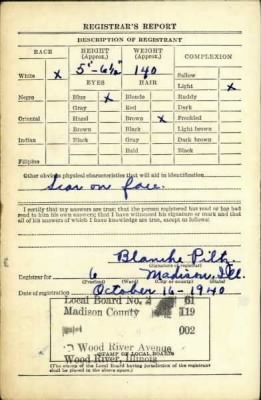 REGISTRAR'S REPORT
DESCRIPTION OF REGISTRANT
RACE HEIGHT (Approx.) WEIGHT (Approx.) COMPLEXION
White x 5'-6½" 140 Sallow
EYES HAIR Light x
Negro Blue x Blonde Ruddy
Gray Red Dark
Oriental Hazel Brown x Freckled
Brown Black Light brown
Indian Black Gray Dark brown
Bald Black
Filipino
Other obvious physical characteristics that will aid in identification
Scar on face.
I certify that my answers are true; that the person registered has read or has had
read to him his own answers; that I have witnessed his signature or mark and that
all of his answers of which I have knowledge are true, except as follows:
Blanche
(Signature of registrar)
Registrar for 6 Madison, Ill.
(Precinct) (Ward) (City or county) (State)
Date of registration October 16-1940
Local Board No. 2 61
Madison County 119
002
Wood River Avenue
Wood River, Illinois
(STAMP OF LOCAL BOARD)
(The stamp of the Local Board having jurisdiction of the registrant
shall be placed in the above space.)